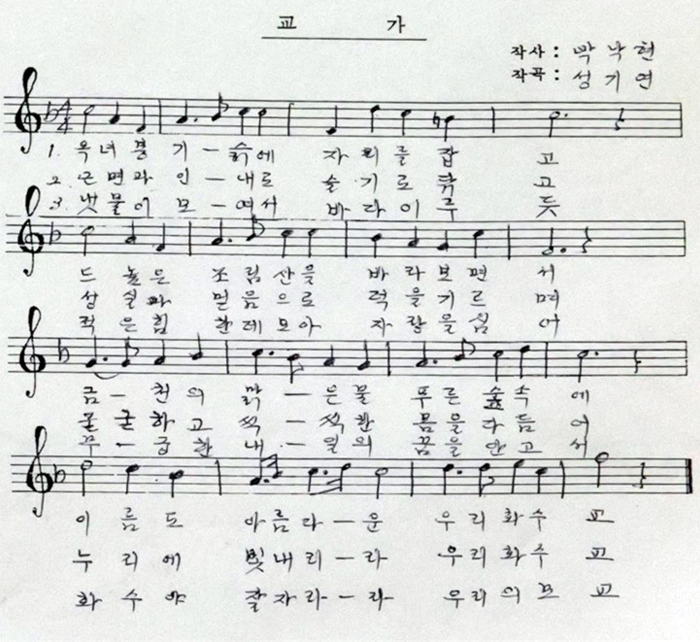 교 가
작사 : 박낙현
작곡 : 성기연
4
4
1. 옥녀봉 기 — 슭에 자리를 잡 고
2. 근면과 인 — 내로 슬기로 닦 고
3. 냇물이 모 — 여서 바다이루 듯
드높은 조림산을 바라보면 서
성실과 믿음으로 덕을기르 며
적은힘 한데모아 자람을심 어
금 — 천의 맑 — 은물 푸른숲속 에
굳굳하고 씩 — 씩한 몸을다듬 어
꾸 — 급한 내 — 일의 꿈을안고 서
이름도 아름다 — 운 우리화수 교
누리에 빛내리 — 라 우리화수 교
화수야 잘자라 — 라 우리의모 교